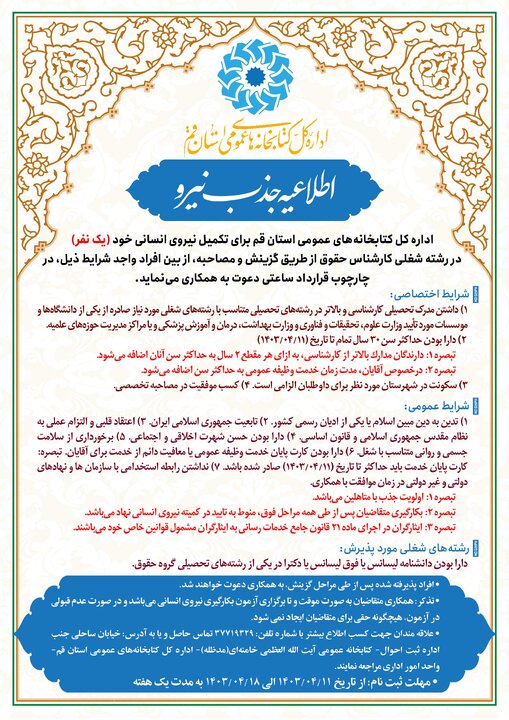 اداره کل کتابخانه‌های عمومی استان قم
اطلاعیه جذب نیرو
اداره کل کتابخانه‌های عمومی استان قم برای تکمیل نیروی انسانی خود (یک نفر)
در رشته شغلی کارشناس حقوق از طریق گزینش و مصاحبه، از بین افراد واجد شرایط ذیل، در
چارچوب قرارداد ساعتی دعوت به همکاری می‌نماید.
شرایط اختصاصی:
۱) داشتن مدرک تحصیلی کارشناسی و بالاتر در رشته‌های تحصیلی متناسب با رشته‌های شغلی مورد نیاز صادره از یکی از دانشگاه‌ها و
موسسات مورد تأیید وزارت علوم، تحقیقات و فناوری و وزارت بهداشت، درمان و آموزش پزشکی و یا مراکز مدیریت حوزه‌های علمیه.
۲) دارا بودن حداکثر سن ۳۰ سال تمام تا تاریخ (۱۴۰۳/۰۴/۱۱)
تبصره ۱: دارندگان مدارك بالاتر از کارشناسی، به ازای هر مقطع ۲ سال به حداکثر سن آنان اضافه می‌شود.
تبصره ۲: درخصوص آقایان، مدت زمان خدمت وظیفه عمومی به حداکثر سن اضافه می‌شود.
۳) سکونت در شهرستان مورد نظر برای داوطلبان الزامی است. ۴) کسب موفقیت در مصاحبه تخصصی.
شرایط عمومی:
۱) تدین به دین مبین اسلام یا یکی از ادیان رسمی کشور. ۲) تابعیت جمهوری اسلامی ایران. ۳) اعتقاد قلبی و التزام عملی به
نظام مقدس جمهوری اسلامی و قانون اساسی. ۴) دارا بودن حسن شهرت اخلاقی و اجتماعی. ۵) برخورداری از سلامت
جسمی و روانی متناسب با شغل. ۶) دارا بودن کارت پایان خدمت وظیفه عمومی یا معافیت دائم از خدمت برای آقایان. تبصره:
کارت پایان خدمت باید حداکثر تا تاریخ (۱۴۰۳/۰۴/۱۱) صادر شده باشد. ۷) نداشتن رابطه استخدامی با سازمان ها و نهادهای
دولتی و غیر دولتی در زمان موافقت با همکاری.
تبصره ۱: اولویت جذب با متاهلین می‌باشد.
تبصره ۲: بکارگیری متقاضیان پس از طی همه مراحل فوق، منوط به تایید در کمیته نیروی انسانی نهاد می‌باشد.
تبصره ۳: ایثارگران در اجرای ماده ۲۱ قانون جامع خدمات رسانی به ایثارگران مشمول قوانین خاص خود می‌باشند.
رشته‌های شغلی مورد پذیرش:
دارا بودن دانشنامه لیسانس یا فوق لیسانس یا دکترا در یکی از رشته‌های تحصیلی گروه حقوق.
• افراد پذیرفته شده پس از طی مراحل گزینش، به همکاری دعوت خواهند شد.
• تذکر: همکاری متقاضیان به صورت موقت و تا برگزاری آزمون بکارگیری نیروی انسانی می‌باشد و در صورت عدم قبولی
در آزمون، هیچگونه حقی برای متقاضیان ایجاد نمی شود.
• علاقه مندان جهت کسب اطلاع بیشتر با شماره تلفن: ۳۷۷۱۹۳۲۹ تماس حاصل و یا به آدرس: خیابان ساحلی جنب
اداره ثبت احوال- کتابخانه عمومی آیت الله العظمی خامنه‌ای(مدظله)- اداره کل کتابخانه‌های عمومی استان قم-
واحد امور اداری مراجعه نمایند.
• مهلت ثبت نام: از تاریخ ۱۴۰۳/۰۴/۱۱ الی ۱۴۰۳/۰۴/۱۸ به مدت یک هفته